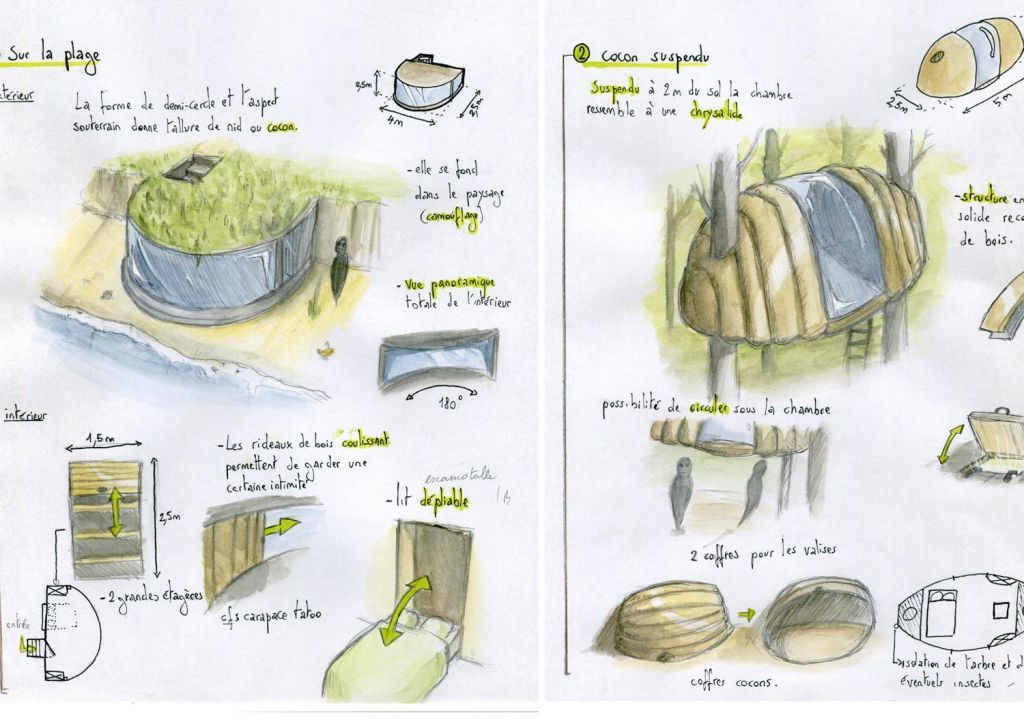 Sur la plage
extérieur
La forme de demi-cercle et l'aspect
souterrain donne l'allure de nid ou cocon.
2,5m
4m
2,5m
- elle se fond
dans le paysage
(camouflage)
- Vue panoramique
totale de l'intérieur
180°
intérieur
1,5m
2,5m
- 2 grandes étagères
entrée
- Les rideaux de bois coulissant
permettent de garder une
certaine intimité
cfs carapace tatoo
escamotable
- lit dépliable
2 cocon suspendu
Suspendu à 2m du sol la chambre
ressemble à une chrysalide
2,5m
5m
- structure en
solide reco
de bois.
possibilité de circuler sous la chambre
2 coffres pour les valises
coffres cocons.
isolation de l'arbre et d
éventuels insectes